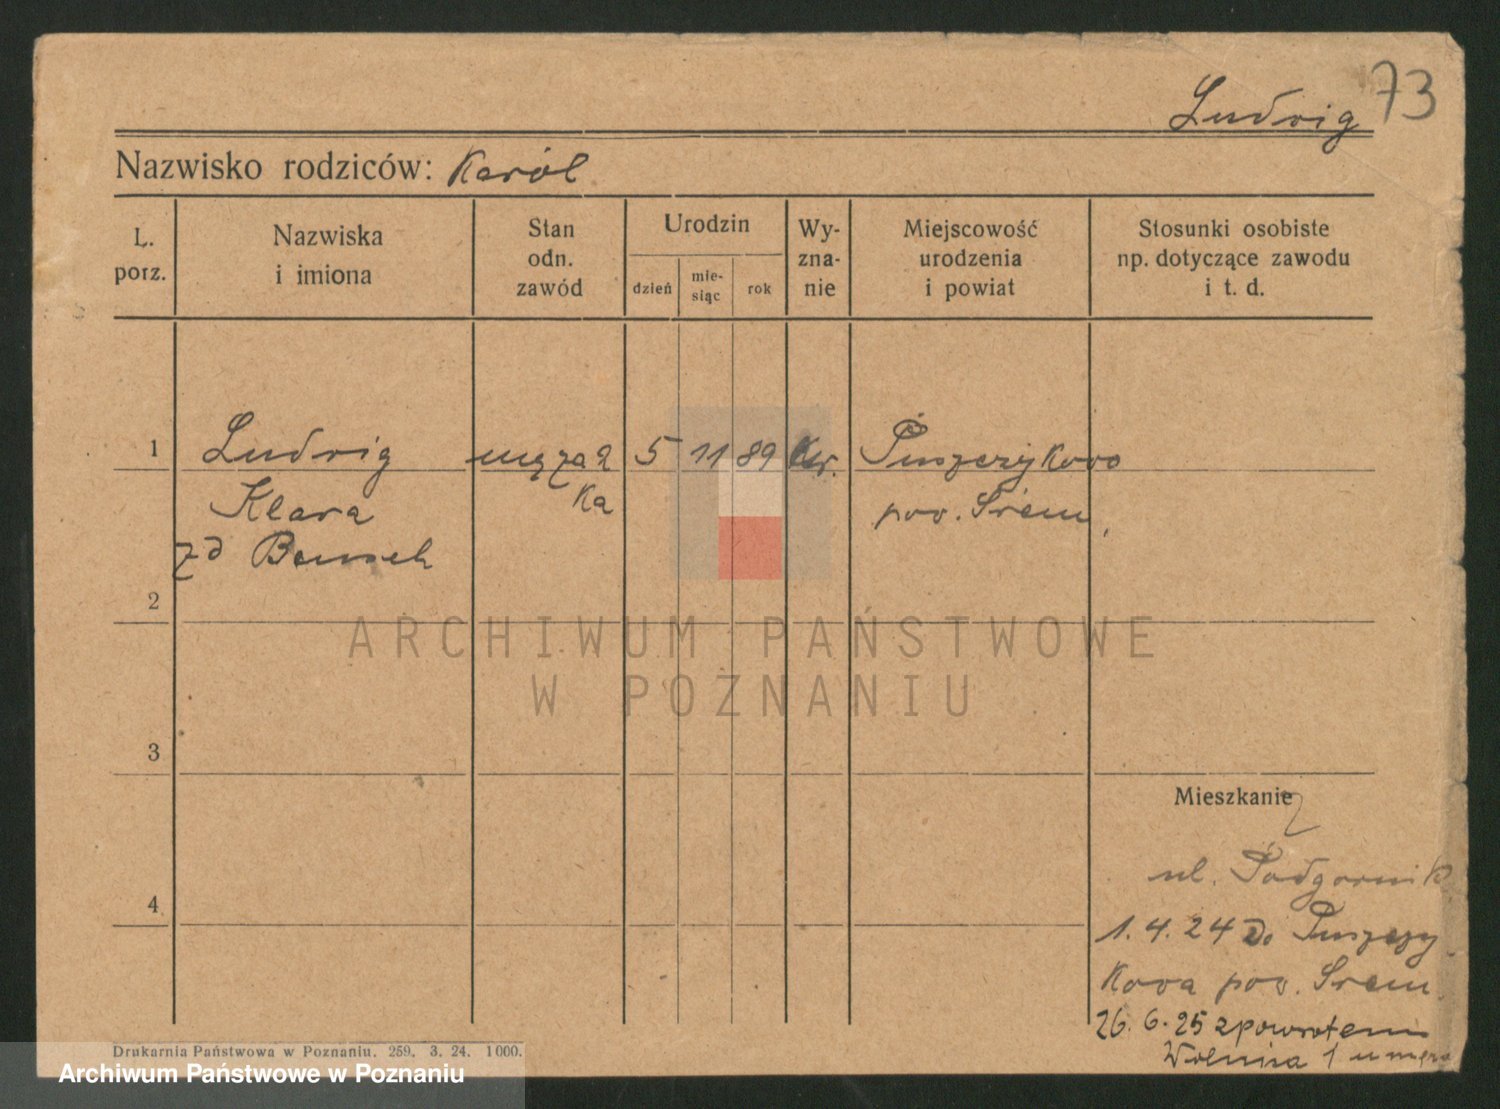 73
Ludwig
Nazwisko rodziców: Karól
L. porz.
Nazwiska i imiona
Stan odn. zawód
Urodzin
dzień
mie- siąc
rok
Wy- zna- nie
Miejscowość urodzenia i powiat
Stosunki osobiste np. dotyczące zawodu i t. d.
1 Ludwig mężat 5 11 89 kw. Puszczykowo
Klara ka pow. Śrem
zd
2
ARCHIWUM PAŃSTWOWE
W POZNANIU
3
Mieszkanie
4
ul. Podgornik
1.4.24 do Puszczy
kowa pow. Śrem.
26.6.25 zpowrotem
1 u męża
Drukarnia Państwowa w Poznaniu. 259. 3. 24. 1000.
Archiwum Państwowe w Poznaniu